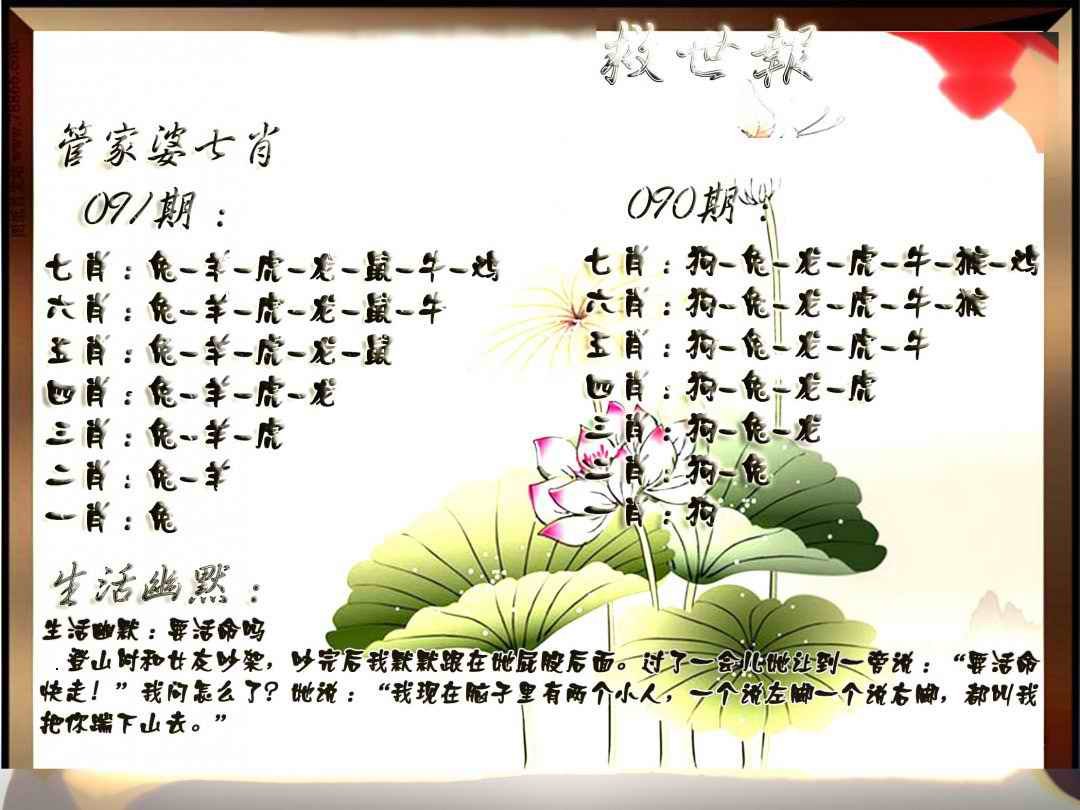 救世報
管家婆七肖
091期：
七肖：兔-羊-虎-龙-鼠-牛-鸡
六肖：兔-羊-虎-龙-鼠-牛
五肖：兔-羊-虎-龙-鼠
四肖：兔-羊-虎-龙
三肖：兔-羊-虎
二肖：兔-羊
一肖：兔
090期：
七肖：狗-兔-龙-虎-牛-猴-鸡
六肖：狗-兔-龙-虎-牛-猴
五肖：狗-兔-龙-虎-牛
四肖：狗-兔-龙-虎
三肖：狗-兔-龙
二肖：狗-兔
一肖：狗
生活幽默：
生活幽默：要活命吗
.登山时和女友吵架，吵完后我默默跟在她屁股后面。过了一会儿她让到一旁说：“要活命
快走！”我问怎么了？她说：“我现在脑子里有两个小人，一个说左脚一个说右脚，都叫我
把你踹下山去。”